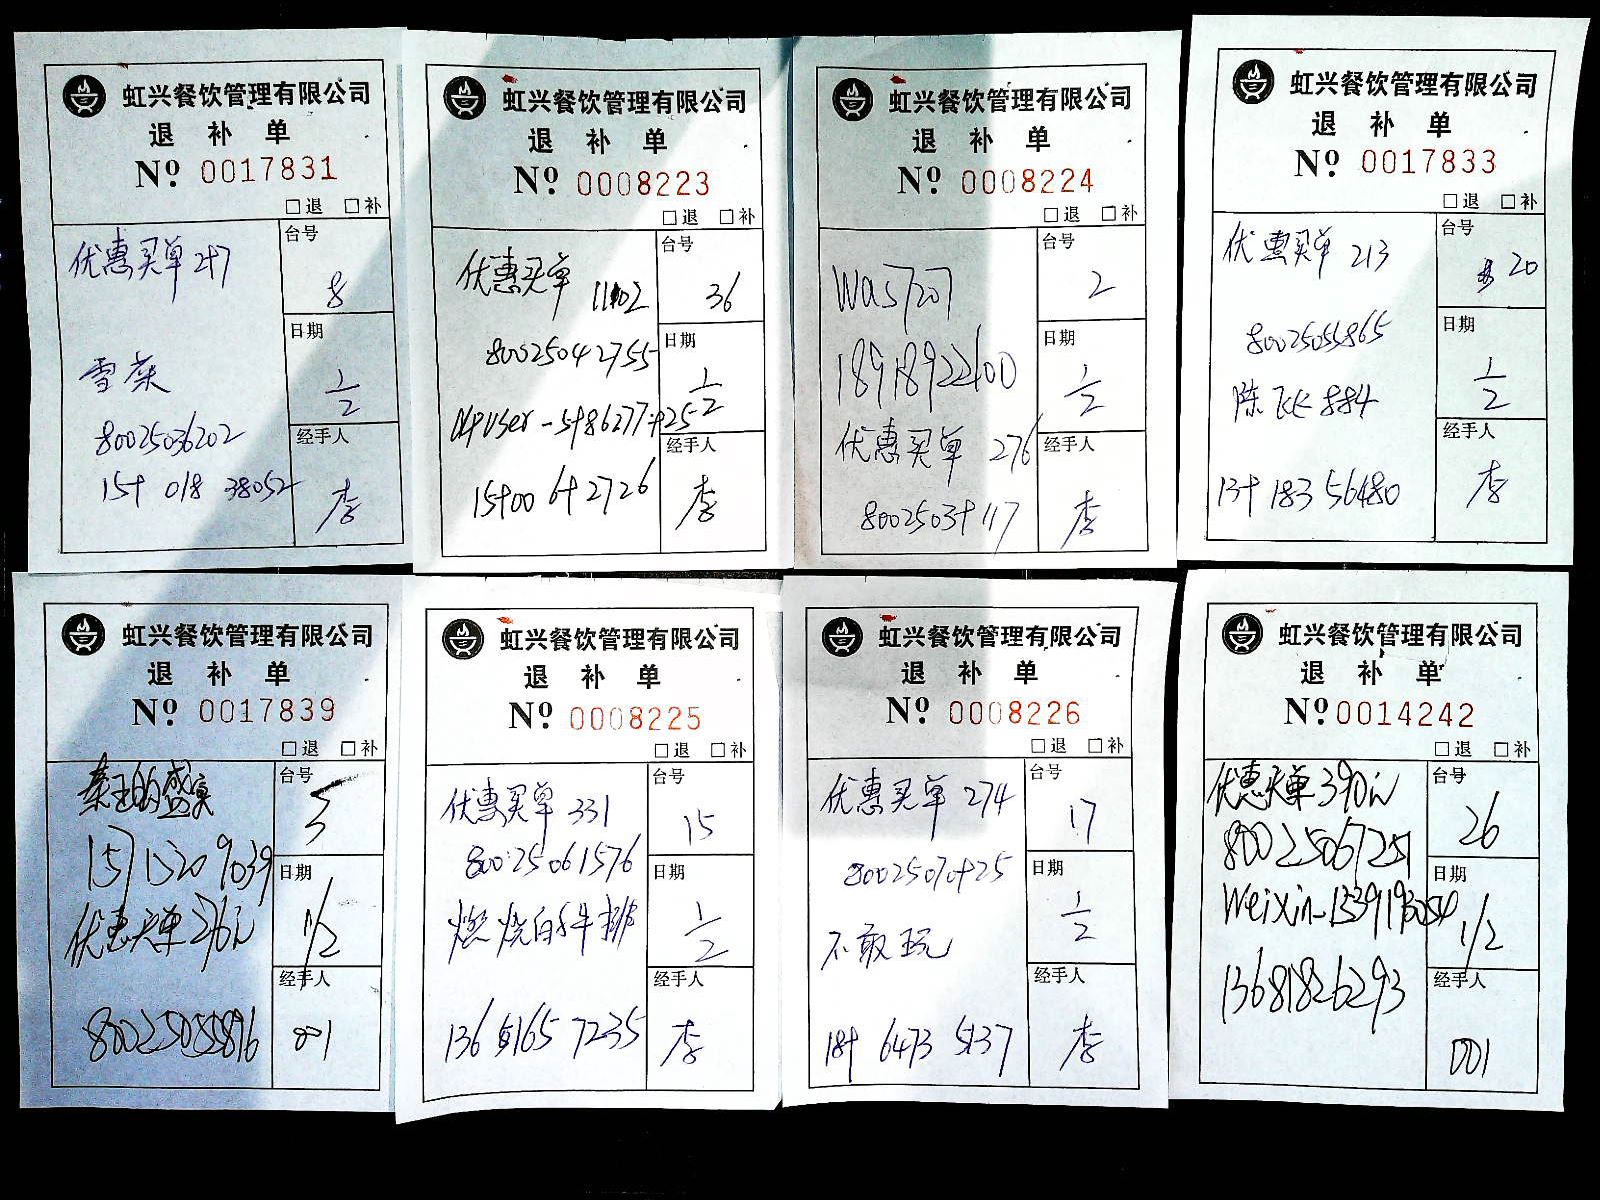 虹兴餐饮管理有限公司
退 补 单
Nº 0017831
□退 □补
优惠买单 247
台号
8
雪菜
日期
1/2
80025036202
经手人
154 018 38052
李
虹兴餐饮管理有限公司
退 补 单
Nº 0008223
□退 □补
优惠买单 1102
台号
36
80025042755
日期
1/2
经手人
15400 642726
李
虹兴餐饮管理有限公司
退 补 单
Nº 0008224
□退 □补
台号
2
Was7207
日期
1/2
18918922400
优惠买单 276
经手人
80025034117
李
虹兴餐饮管理有限公司
退 补 单
Nº 0017833
□退 □补
优惠买单 213
台号
20
80025055865
日期
1/2
陈飞飞884
经手人
134 183 56480
李
虹兴餐饮管理有限公司
退 补 单
Nº 0017839
□退 □补
秦王的盛宴
台号
5
157 1520 9039
日期
1/2
优惠买单276元
经手人
80025055896
001
虹兴餐饮管理有限公司
退 补 单
Nº 0008225
□退 □补
优惠买单 331
台号
15
80025061576
日期
1/2
燃烧的牛排
经手人
136 5165 7235
李
虹兴餐饮管理有限公司
退 补 单
Nº 0008226
□退 □补
优惠买单 274
台号
17
80025070425
日期
1/2
不敢玩
经手人
184 6473 5137
李
虹兴餐饮管理有限公司
退 补 单
Nº 0014242
□退 □补
优惠买单390元
台号
26
80025067251
日期
1/2
经手人
13681826293
001